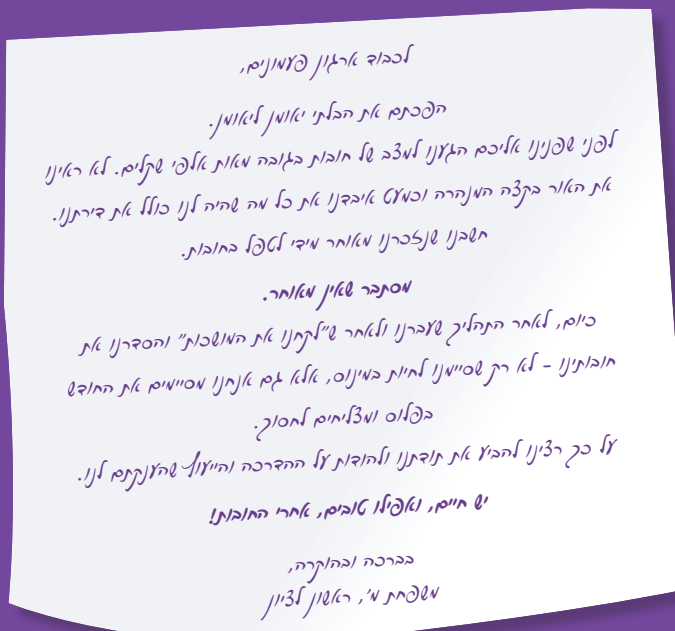 לכבוד ארגון פעמונים,
הפכתם את הבלתי יאומן ליאומן.
לפני שפנינו אליכם הגענו למצב של חובות בגובה מאות אלפי שקלים. לא ראינו
את האור בקצה המנהרה וכמעט איבדנו את כל מה שהיה לנו כולל את דירתנו.
חשבנו שנזכרנו מאוחר מידי לטפל בחובות.
מסתבר שאין מאוחר.
כיום, לאחר התהליך שעברנו ולאחר ש"לקחנו את המושכות" והסדרנו את
חובותינו - לא רק שסיימנו לחיות במינוס, אלא גם אנחנו מסיימים את החודש
בפלוס ומצליחים לחסוך.
על כך רצינו להביע את תודתנו ולהודות על ההדרכה והייעוץ שהענקתם לנו.
יש חיים, ואפילו טובים, אחרי החובות!
בברכה ובהוקרה,
משפחת מ', ראשון לציון